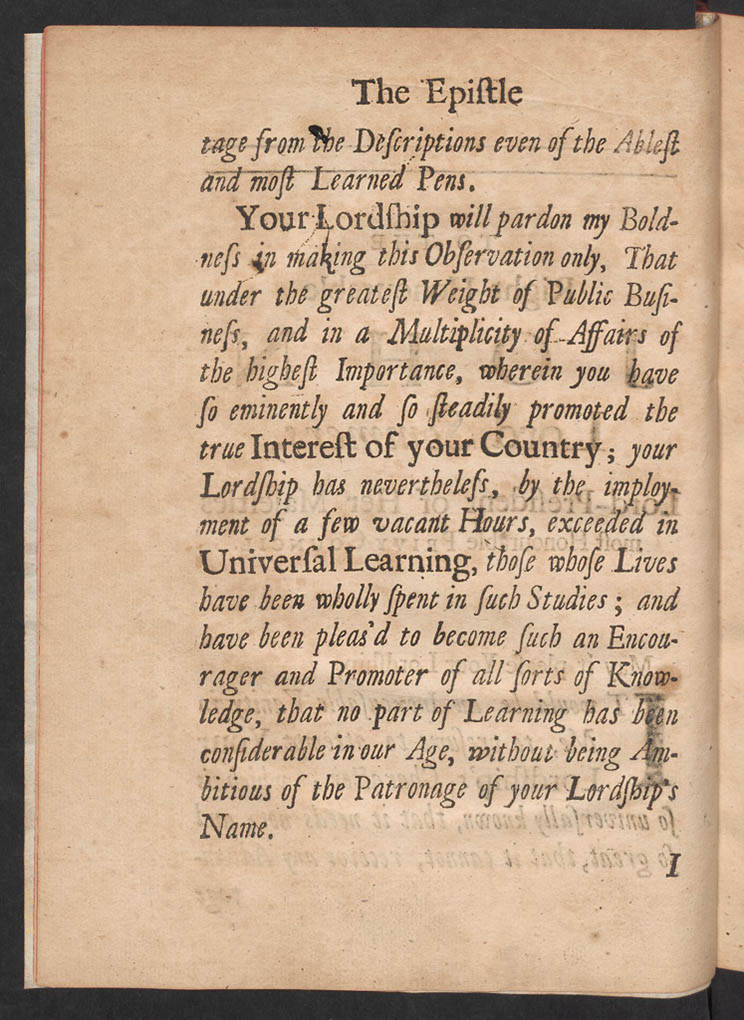 The Epiſtle
tage from the Deſcriptions even of the Ableſt
and moſt Learned Pens.
Your Lordſhip will pardon my Bold-
neſs in making this Obſervation only, That
under the greateſt Weight of Public Buſi-
neſs, and in a Multiplicity of Affairs of
the higheſt Importance, wherein you have
ſo eminently and ſo ſteadily promoted the
true Intereſt of your Country; your
Lordſhip has nevertheleſs, by the imploy-
ment of a few vacant Hours, exceeded in
Univerſal Learning, thoſe whoſe Lives
have been wholly ſpent in ſuch Studies; and
have been pleas'd to become ſuch an Encou-
rager and Promoter of all ſorts of Know-
ledge, that no part of Learning has been
conſiderable in our Age, without being Am-
bitious of the Patronage of your Lordſhip's
Name.
I